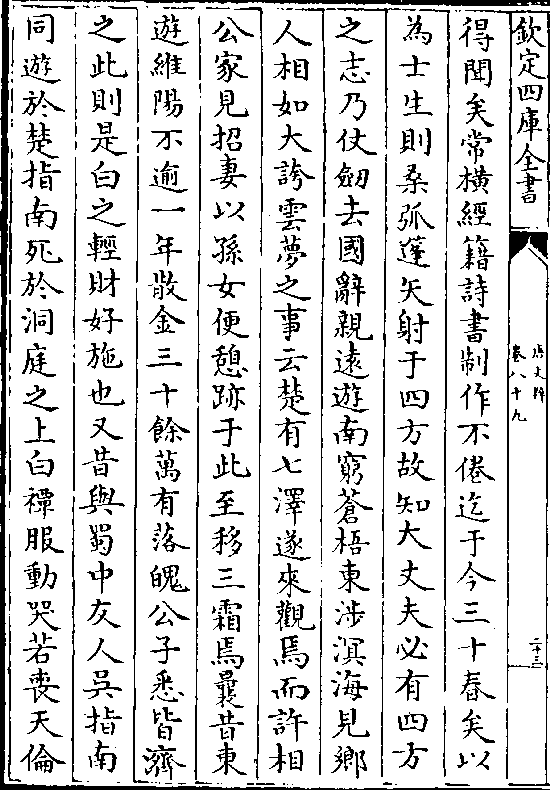 欽定四庫全書
唐文粹
卷八十九
二十三
得聞矣常橫經籍詩書制作不倦迄于今三十春矣以
為士生則桑弧蓬矢射于四方故知大丈夫必有四方
之志乃仗劒去國辭親遠遊南窮蒼梧東涉溟海見鄉
人相如大誇雲夢之事云楚有七澤遂來觀焉而許相
公家見招妻以孫女便憩跡于此至移三霜焉曩昔東
遊維陽不逾一年散金三十餘萬有落魄公子悉皆濟
之此則是白之輕財好施也又昔與蜀中友人吳指南
同遊於楚指南死於洞庭之上白禫服動哭若喪天倫